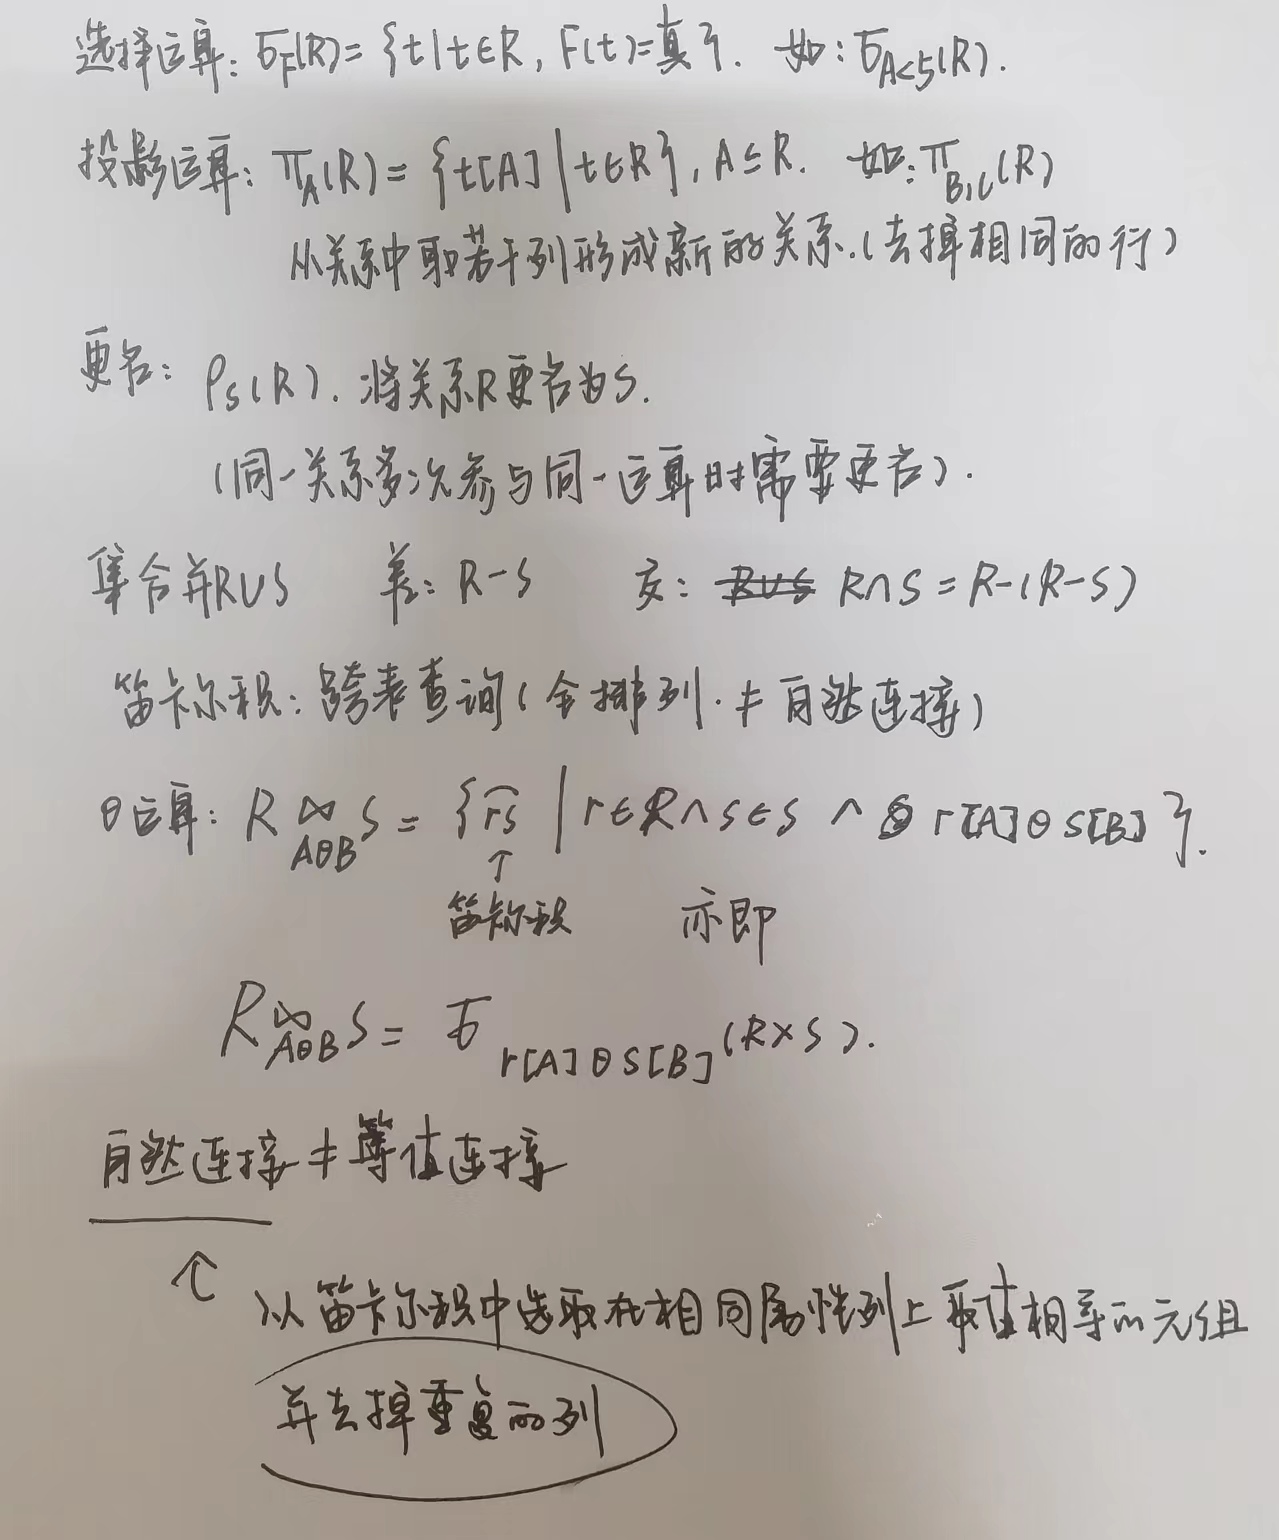 选择运算: σF(R)= {t|t∈R, F(t)=真}. 如: σA<5(R).
投影运算: πA(R)= {t[A]|t∈R}, A⊆R. 如: πB,C(R)
从关系中取若干列形成新的关系.(去掉相同的行)
更名: ρS(R). 将关系R更名为S.
(同一关系多次参与同一运算时需要更名).
集合并R∪S 差: R-S 交: R∪S R∩S=R-(R-S)
笛卡尔积: 跨表查询(全排列. ≠自然连接)
θ运算: R⋈AθB S = {r͡s | r∈R∧s∈S ∧ r[A]θS[B]}.
↑
笛卡尔积 亦即
R⋈AθB S = σ r[A]θS[B] (R×S).
自然连接≠等值连接
↑ 从笛卡尔积中选取在相同属性列上取值相等的元组
并去掉重复的列